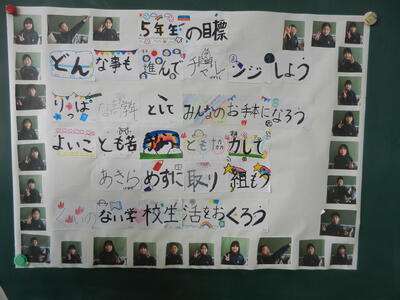 5年生の目標
どんな事も進んでチャレンジしよう
りっぱな として みんなのお手本になろう
よいことも苦 とも協力して
あきらめずに取り組もう
くいのない学校生活をおくろう